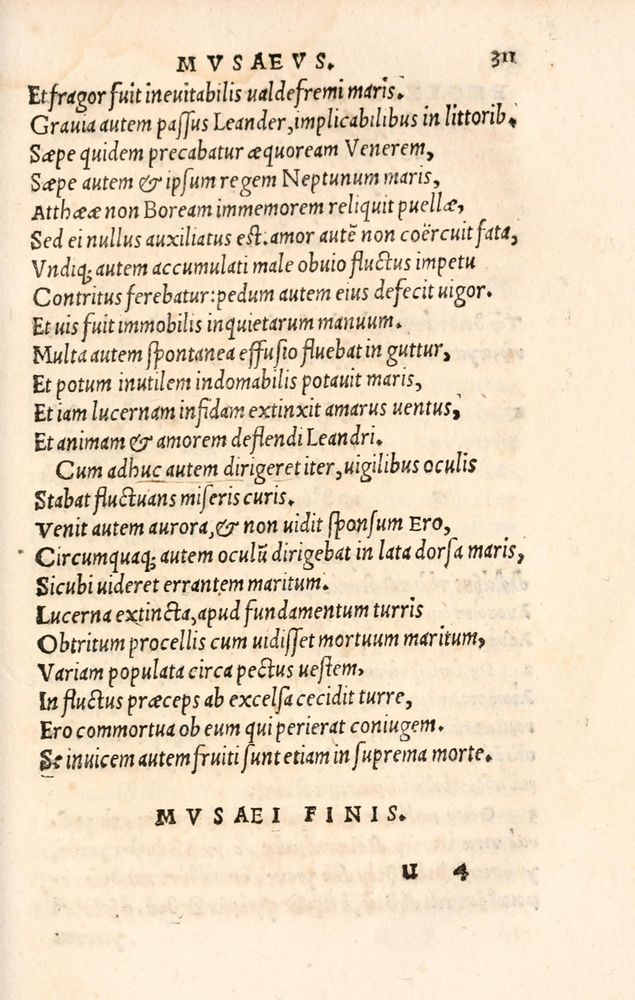 MVSAEVS. 311
Et fragor fuit ineuitabilis ualde fremi maris.
Grauia autem paſſus Leander, implicabilibus in littorib.
Sæpe quidem precabatur æquoream Venerem,
Sæpe autem & ipſum regem Neptunum maris,
Atthææ non Boream immemorem reliquit puellæ,
Sed ei nullus auxiliatus eſt. amor autē non coërcuit fata,
Vndiq; autem accumulati male obuio fluctus impetu
Contritus ferebatur: pedum autem eius defecit uigor.
Et uis fuit immobilis inquietarum manuum.
Multa autem ſpontanea effuſio fluebat in guttur,
Et potum inutilem indomabilis potauit maris,
Et iam lucernam infidam extinxit amarus uentus,
Et animam & amorem deflendi Leandri.
Cum adhuc autem dirigeret iter, uigilibus oculis
Stabat fluctuans miſeris curis.
Venit autem aurora, & non uidit ſponſum Ero,
Circumquaq; autem oculū dirigebat in lata dorſa maris,
Sicubi uideret errantem maritum.
Lucerna extincta, apud fundamentum turris
Obtritum procellis cum uidiſſet mortuum maritum,
Variam populata circa pectus ueſtem,
In fluctus præceps ab excelſa cecidit turre,
Ero commortua ob eum qui perierat coniugem.
Se inuicem autem fruiti ſunt etiam in ſuprema morte.
MVSAEI FINIS.
u 4